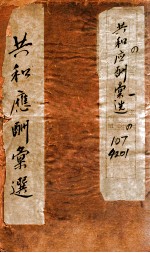 共和應酬彙選
共和应酬彙选
の
の
107
4201